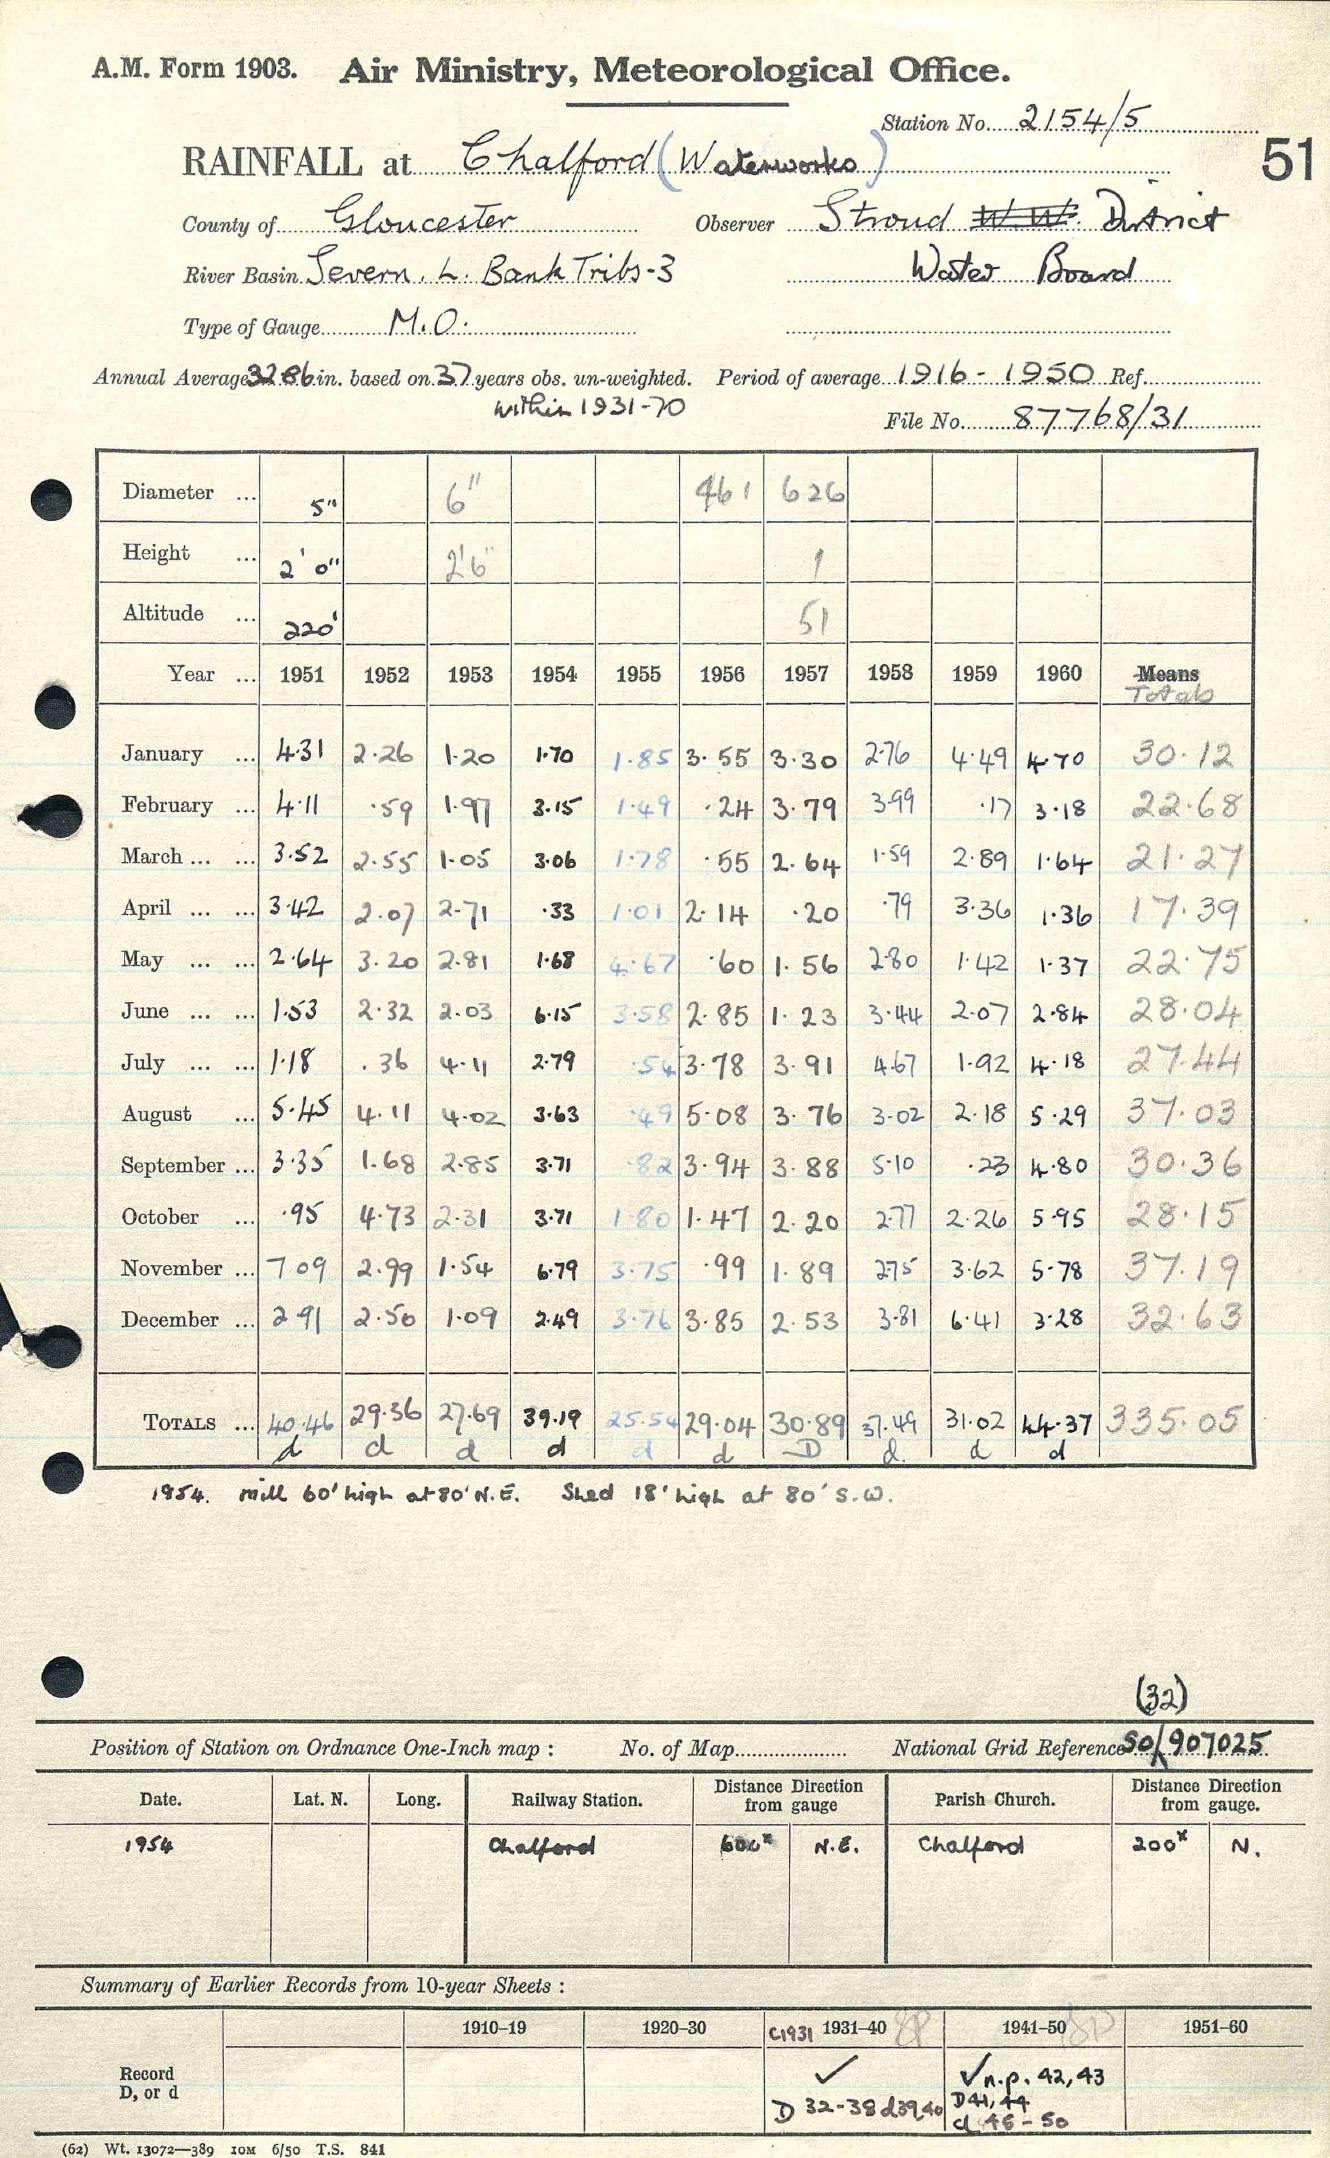 A.M. Form 1903. Air Ministry, Meteorological Office.
Station No. 2154/5
RAINFALL at Chalford (Waterworks) 51
County of Gloucester Observer Stroud W.W. District
River Basin Severn. L. Bank Tribs-3 Water Board
Type of Gauge M.O.
Annual Average 3286 in. based on 37 years obs. un-weighted. Period of average 1916 - 1950 Ref.
within 1931-70
File No. 87768/31
Diameter ... 5" 6" 461 626
Height ... 2' 0" 2'6" 1
Altitude ... 220' 51
Year ... 1951 1952 1953 1954 1955 1956 1957 1958 1959 1960 Means
Totals
January ... 4.31 2.26 1.20 1.70 1.85 3.55 3.30 2.76 4.49 4.70 30.12
February ... 4.11 .59 1.97 3.15 1.49 .24 3.79 3.99 .17 3.18 22.68
March ... ... 3.52 2.55 1.05 3.06 1.78 .55 2.64 1.59 2.89 1.64 21.27
April ... ... 3.42 2.07 2.71 .33 1.01 2.14 .20 .79 3.36 1.36 17.39
May ... ... 2.64 3.20 2.81 1.68 4.67 .60 1.56 2.80 1.42 1.37 22.75
June ... ... 1.53 2.32 2.03 6.15 3.58 2.85 1.23 3.44 2.07 2.84 28.04
July ... ... 1.18 .36 4.11 2.79 .54 3.78 3.91 4.67 1.92 4.18 27.44
August ... 5.45 4.11 4.02 3.63 .49 5.08 3.76 3.02 2.18 5.29 37.03
September ... 3.35 1.68 2.85 3.71 .82 3.94 3.88 5.10 .23 4.80 30.36
October ... .95 4.73 2.31 3.71 1.80 1.47 2.20 2.77 2.26 5.95 28.15
November ... 7 09 2.99 1.54 6.79 3.75 .99 1.89 2.75 3.62 5.78 37.19
December ... 2 91 2.50 1.09 2.49 3.76 3.85 2.53 3.81 6.41 3.28 32.63
TOTALS ... 40.46 29.36 27.69 39.19 25.54 29.04 30.89 37.49 31.02 44.37 335.05
d d d d d d D d. d d
1954. Mill 60' high at 80' N.E. Shed 18' high at 80' S.W.
(32)
Position of Station on Ordnance One-Inch map : No. of Map National Grid Reference SO/907025
Date. Lat. N. Long. Railway Station. Distance Direction from gauge Parish Church. Distance Direction from gauge.
1954 Chalford 600x N.E. Chalford 200x N.
Summary of Earlier Records from 10-year Sheets :
1910–19 1920–30 C1931 1931–40 8P 1941–50 8P 1951–60
Record ✓ ✓ n.p. 42, 43
D, or d D 32-38 d39,40 D41, 44
d 45 - 50
(62) Wt. 13072—389 10M 6/50 T.S. 841